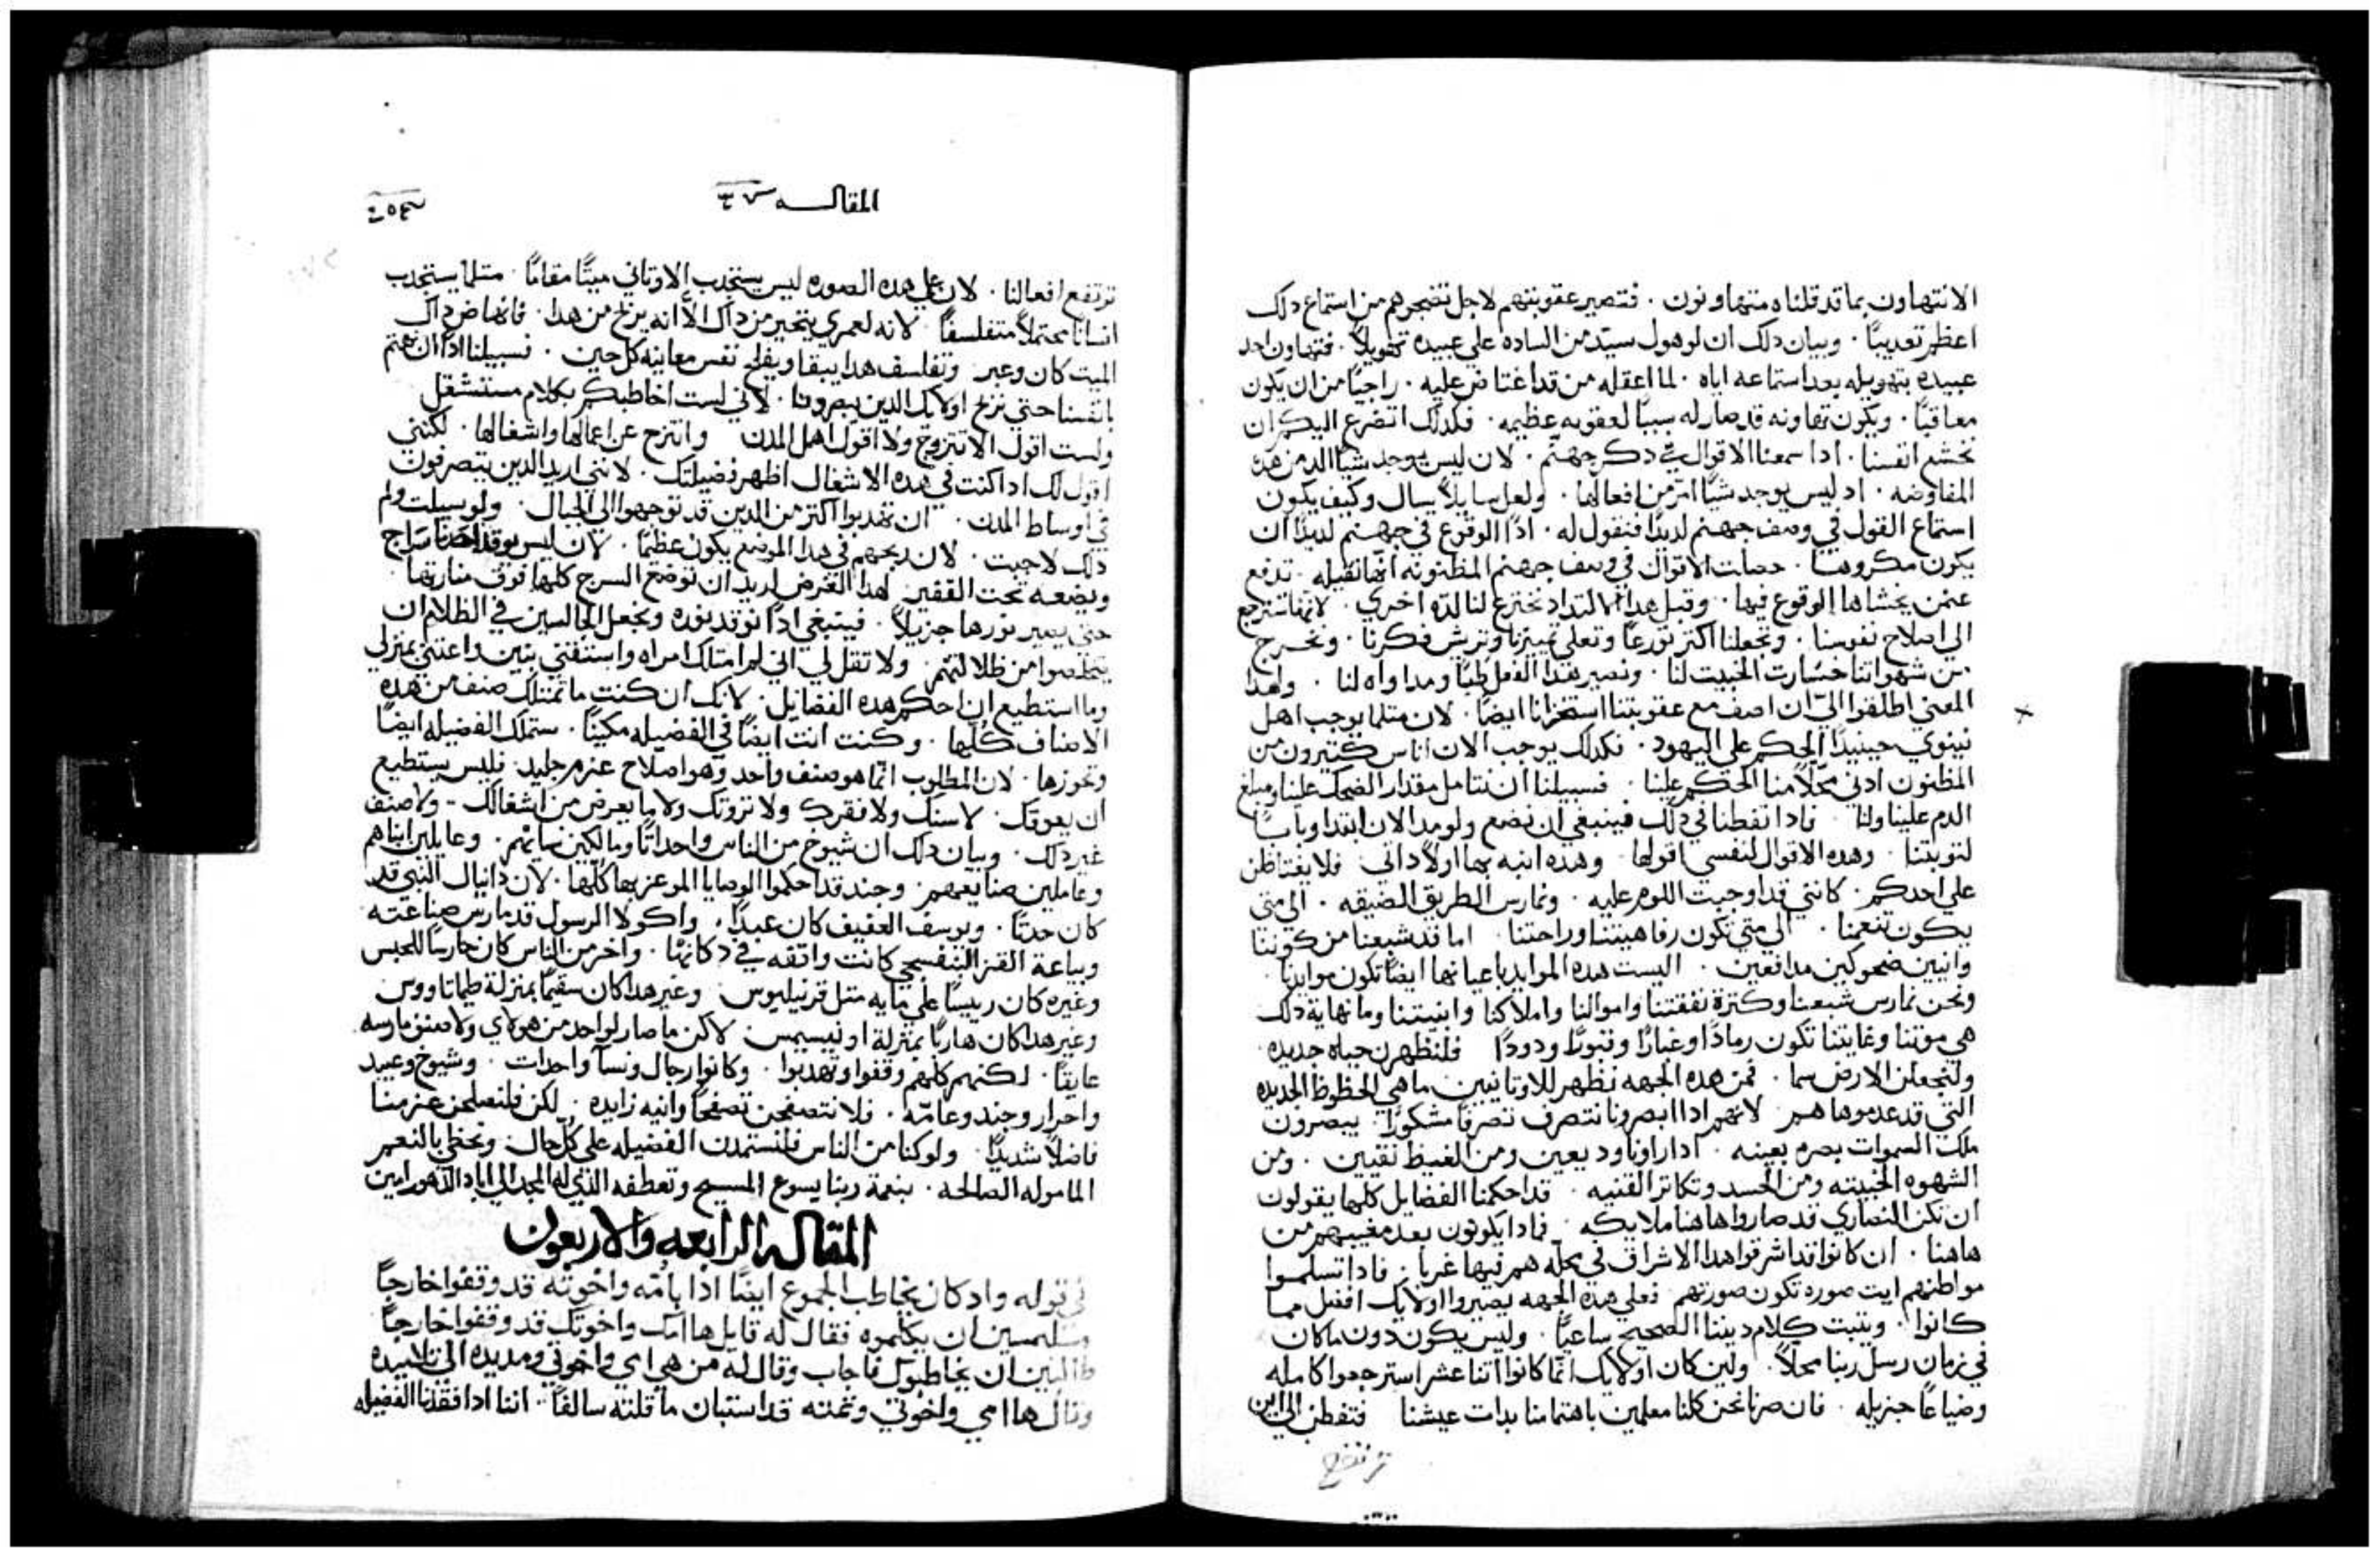 الا نتهاون بما قد قلناه متهاونون . فتصير عقوبتهم لاجل تضجرهم من استماع دلك
اعظم تعديبًا . وبيان دلك ان لو هول سيّد من الساده علي عبيده تهويلاً . فتهاون احد
عبيده بتهويله بعد استماعه اياه . لما اعقله من قد اغتاض عليه . راجيًا من ان يكون
معاقبًا . ويكون تهاونه قد صار له سببًا لعقوبه عظيمه . فكدلك اتضرع اليكم ان
نخشع انفسنا . ادا سمعنا الاقوال في دكر جهنّم . لان ليس يوجد شيًا الد من هده
المفاوضه . اد ليس يوجد شيًا امرّ من افعالها . ولعل سايلاً يسال وكيف يكون
استماع القول في وصف جهنم لديدًا فنقول له . ادًا الوقوع في جهنم لديدًا ان
يكون مكروهًا . حصلت الاقوال في وصف جهنم المظنونه انها ثقيله . تدفع
عمّن يخشاها الوقوع فيها . وقبل هدا الالتداد تخترع لنا لدّه اخري . لانها تسترجع
الي اصلاح نفوسنا . وتجعلنا اكتر تورعًا وتعلي تمييزنا وتريش فكرنا . وتخرج
من شهواتنا خسّارت الخبيت لنا . ونصير هدا الفعل طبًا ومداواه لنا . ولهدا
المعني اطلقوا اليّ ان اصف مع عقوبتنا استخزانا ايضًا . لان متلما يوجب اهل
نينوي حينيدًا الحكم علي اليهود . فكدلك يوجب الان اناس كتيرون من
المظنون ادني محلاً منا الحكم علينا . فسبيلنا ان نتامل مقدار الضحك علينا ومبلغ
الدم علينا ولنا . فادا تفطنا في دلك فينبغي ان نضع ولو مدا الان ابتدا وبابًا
لتوبتنا . وهده الاقوال لنفسي اقولها . وهده انبه بها اولاً داتي . فلا يغتاظن
علي احدكم . كانني قد اوجبت اللوم عليه . ونمارس الطريق الضيقه . الي متي
يكون تنعمنا . الي متي تكون رفاهيتنا وراحتنا . اما قد شبعنا من كوننا
وانيين ضحوكين مدافعين . اليست هده الموايد باعيانها ايضًا تكون موايدنا .
ونحن نمارس شبعنا وكترة نفقتنا واموالنا واملاكنا وابنيتنا وما نهاية دلك
هي موتنا وغايتنا تكون رمادًا وغبارًا وقبورًا ودودًا . فلنظهرن حياه جديده .
ولنجعلن الارض سما . فمن هده الجهه نظهر للاوتانيين ما هي الحظوظ الجديده
التي قد عدموها هم . لانهم ادا ابصرونا نتصرف تصرفًا مشكورًا . يبصرون
ملك السموات بصره بعينه . ادا راونا وديعين ومن الغيظ نقيين . ومن
الشهوه الخبيته ومن الحسد وتكاتر القنيه . قد احكمنا الفضايل كلها يقولون
ان تكن النصاري قد صاروا هاهنا ملايكه . فمادا يكونون بعد مغيبهم من
هاهنا . ان كانوا قد اشرقوا هدا الاشراق في محله هم فيها غربا . فادا تسلموا
مواطنهم ايت صوره تكون صورتهم . فعلي هده الجهه يصيروا اولايك افضل مما
كانوا . ويتبت كلام ديننا الصحيح ساعيًا . وليس يكون دون ما كان
في زمان رسل ربنا محلاً . ولين كان اولايك انما كانوا اتنا عشر استرجعوا كامله
وضياعًا جزيله . فان صرنا نحن كلنا معلمين باهتمامنا بدات عيشنا فتفطن الي اين
ترتفع
المقاله ٤٣
ترتفع افعالنا . لان علي هده الصوره ليس يستجدب الاوتاني ميتًا مقامًا . متلما يستجدب
انسانًا محتملاً متفلسفًا . لانه لعمري يتحير من داك الا انه يربح من هدا . فانهاض داك
الميت كان وعبر . وتفلسف هدا يبقا ويفلح نفس معاينه كل حين . فسبيلنا ادًا ان نهتم
بانفسنا حتي نربح اولايك الدين يبصرونا . لاني لست اخاطبكم بكلام مستتقل
ولست اقول الا تتزوج ولا اقول اهمل المدن وانتزح عن اعمالها واشغالها . لكنني
اقول لك ادا كنت في هده الاشغال اظهر فضيلتك . لانني اريد الدين يتصرفون
في اوساط المدن . ان تهدبوا اكتر من الدين قد توجهوا الي الجبال . ولو سيلت ولم
دلك لاجبت . لان ربحهم في هدا الموضع يكون عظيمًا . لان ليس يوقد احدنا سراج
ويضعه تحت القفير لهدا الغرض اريد ان توضع السرج كلها فوق منارتها .
حتي يصير نورها جزيلاً . فينبغي ادًا نوقد نوره ونجعل الجالسين في الظلام ان
يتخلصوا من ظلالتهم . ولا تقل لي اني لم امتلك امراه واستفتي بنين واعتني بمنزلي
وما استطيع ان احكم هده الفضايل . لانك ان كنت ما تمتلك صنف من هده
الاصناف كلها . وكنت انت ايضًا في الفضيله مكينًا . ستملك الفضيله ايضًا
وتحوزها . لان المطلوب انما هو صنف واحد وهو اصلاح عزم جليد . فليس يستطيع
ان يعوقك . لا سنك ولا فقرك ولا تروتك ولا ما يعرض من اشغالك - ولا صنف
غير دلك . وبيان دلك ان شيوخ من الناس واحداتًا ومالكين نسايهم . وعايلين ابناهم
وعاملين صنايعهم . وجند قد احكموا الوصايا الموعز بها كلها . لان دانيال النبي قد
كان حدتًا . ويوسف العفيف كان عبدًا . واكولا الرسول قد مارس صناعته .
وبياعة القز البنفسجي كانت واقفه في دكانها . واخر من الناس كان حارسًا للحبس
وغيره كان رييسًا علي مايه متل قرنيليوس . وغير هدا كان سقيمًا بمنزلة طيماتاووس
وغير هدا كان هاربًا بمنزلة اونيسيمس . لاكن ما صار لواحد من هولاي ولا صنف مارسه
عايقًا . لكنهم كلهم وقفوا وتهدبوا . وكانوا رجال ونسآ واحدات . وشيوخ وعبيد
واحرار وجند وعامّه . فلا نتصفحن تصفحًا وانيه زايده . لكن فلنصلحن عزمنا
فاضلاً شديدًا . ولو كنا من الناس فلنستمدن الفضيله علي كل حال . ونحظي بالنعم
الماموله الصالحه . بنعمة ربنا يسوع المسيح وتعطفه الذي له المجد الي اباد الدهور امين
المقاله الرابعه والاربعون
في قوله واد كان يخاطب الجموع ايضًا ادا بامّه واخوته قد وقفوا خارجًا
ملتمسين ان يكلموه فقال له قايل ها امك واخوتك قد وقفوا خارجًا
طالبين ان يخاطبوك فاجاب وقال له من هي امي واخوتي ومد يده الي تلاميده
وقال ها امي واخوتي وتمته قد استبان ما قلته سالفًا . اننا ادا فقدنا الفضيله